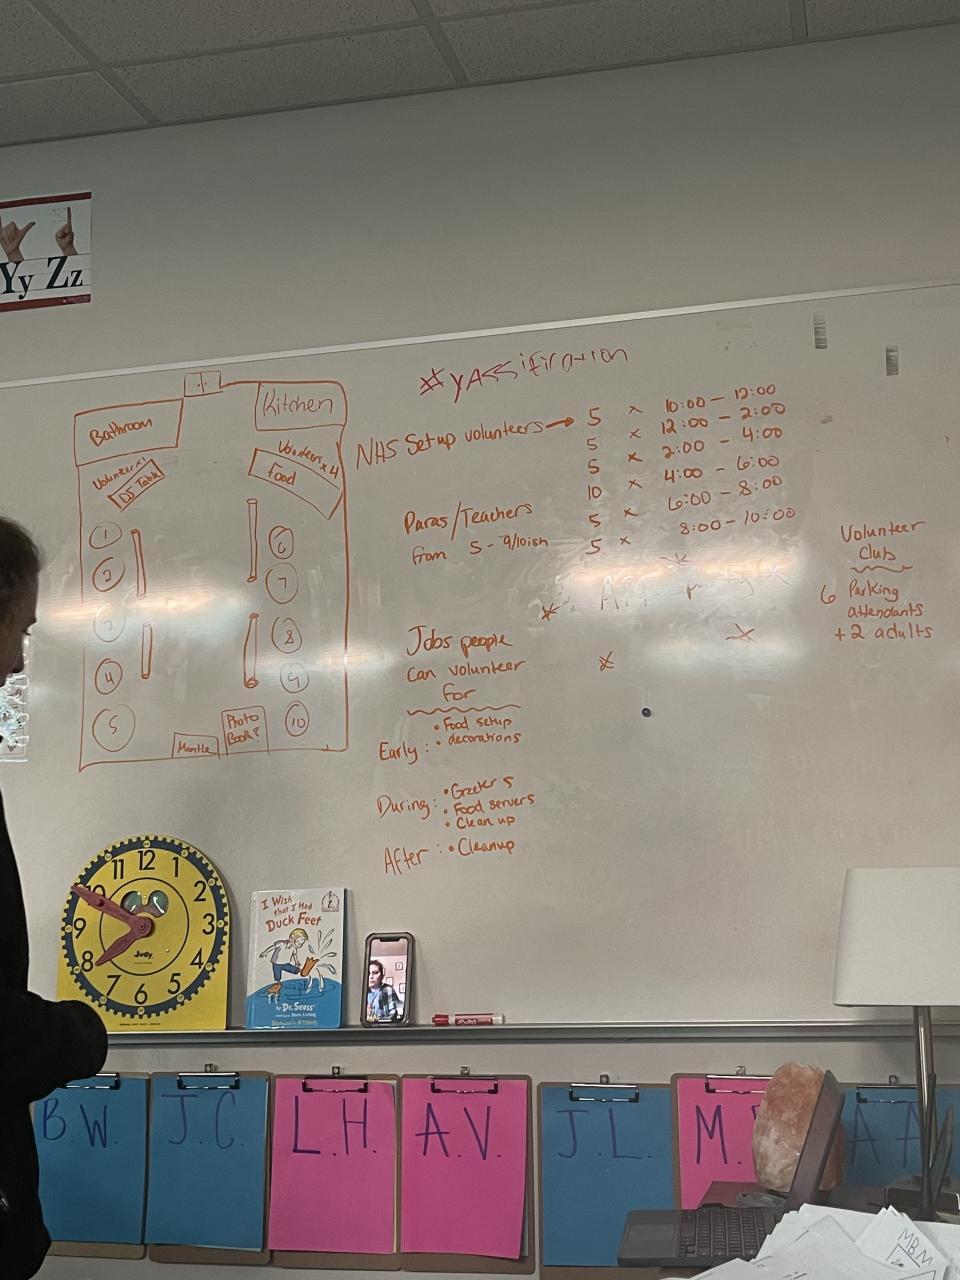 Yy Zz
#yAssification
Bathroom
Kitchen
Volunteer x1
DJ Table
Volunteers x 4
Food
1
2
3
4
5
6
7
8
9
10
Mantle
Photo
Booth?
NHS Setup volunteers → 5 x 10:00 - 12:00
5 x 12:00 - 2:00
5 x 2:00 - 4:00
10 x 4:00 - 6:00
5 x 6:00 - 8:00
5 x 8:00 - 10:00
Paras/Teachers
from 5 - 9/10ish
Jobs people
can volunteer
for
Early: • Food setup
• decorations
During: • Greeters
• Food servers
• Clean up
After: • Cleanup
Volunteer
Club
6 Parking
attendants
+ 2 adults
11 12 1
10 2
9 3
8 4
7 6 5
Judy
I Wish
that I Had
Duck Feet
by Dr. Seuss
EXPO
B.W.
J.C.
L.H.
A.V.
J.L.
M.
A.A
MBM